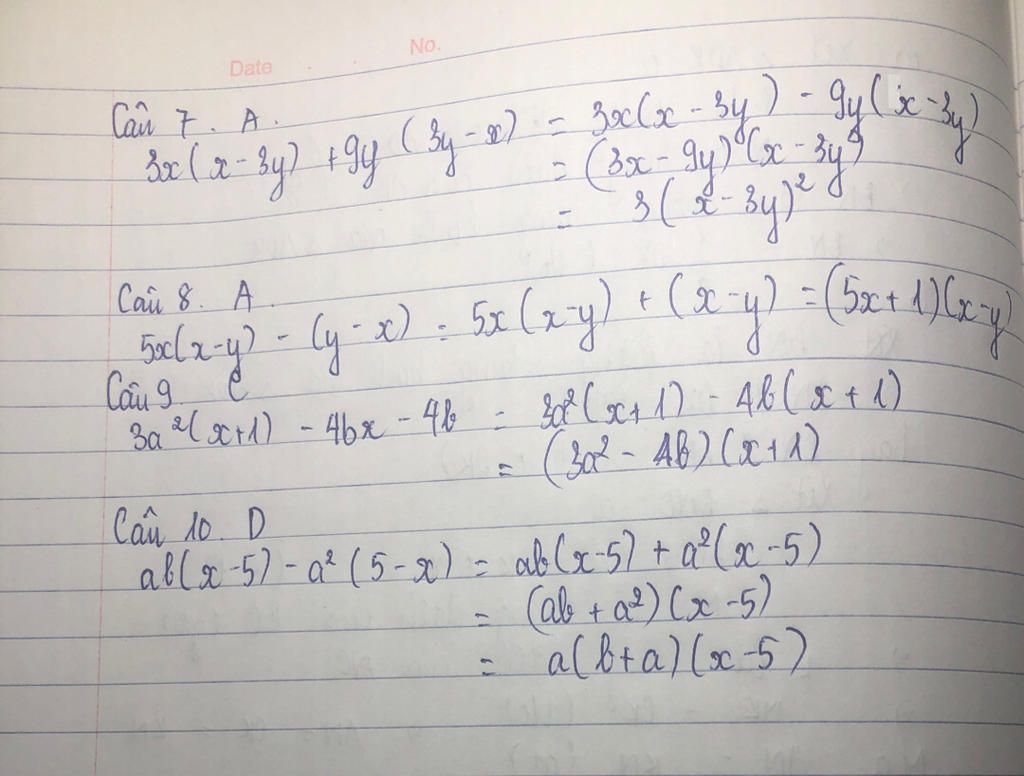 No.
Date
Câu 7. A.
3x(x - 3y) + 9y (3y - x) = 3x(x - 3y) - 9y(x - 3y)
= (3x - 9y)(x - 3y)
= 3(x - 3y)²
Câu 8. A.
5x(x-y) - (y - x) = 5x(x-y) + (x-y) = (5x+1)(x-y)
Câu 9. C
3a²(x+1) - 4bx - 4b = 3a²(x+1) - 4b(x+1)
= (3a² - 4b)(x+1)
Câu 10. D
ab(x-5) - a²(5-x) = ab(x-5) + a²(x-5)
= (ab + a²)(x-5)
= a(b+a)(x-5)